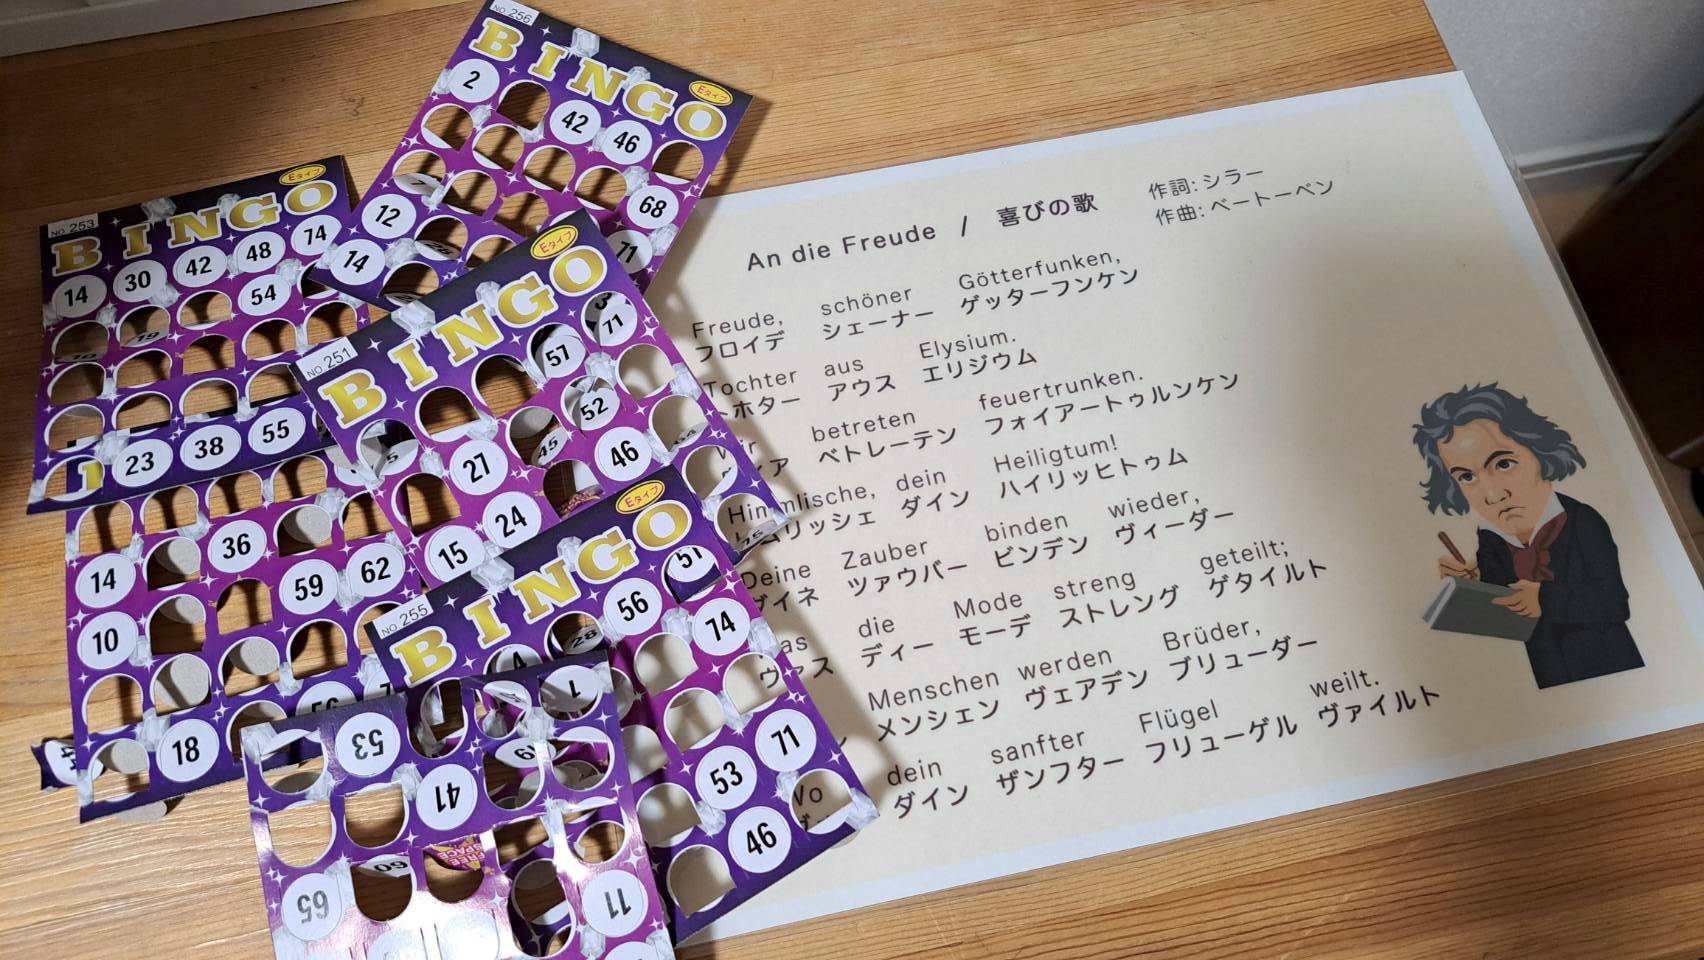 NO. 256
BINGO
Eタイプ
2
42 46
68
12
14
71
NO. 253
BINGO
Eタイプ
14 30 42 48 74
54
19
10
23 38 55
36
14 59 62
10
18
NO. 251
BINGO
Eタイプ
57 71
52
45
27 46
24
15
NO. 255
BINGO
Eタイプ
51
56 74
28
4
71
53
46
1
53
41
60
FREE SPACE
65 11
An die Freude / 喜びの歌
作詞: シラー
作曲: ベートーベン
Freude, schöner Götterfunken,
フロイデ シェーナー ゲッターフンケン
Tochter aus Elysium.
ホター アウス エリジウム
betreten feuertrunken.
ベトレーテン フォイアートゥルンケン
Himmlische, dein Heiligtum!
ムリッシェ ダイン ハイリッヒトゥム
Deine Zauber binden wieder,
ダイネ ツァウバー ビンデン ヴィーダー
as die Mode streng geteilt;
ヴァス ディー モーデ ストレング ゲタイルト
Menschen werden Brüder,
メンシェン ヴェアデン ブリューダー
Wo dein sanfter Flügel weilt.
ダイン ザンフター フリューゲル ヴァイルト